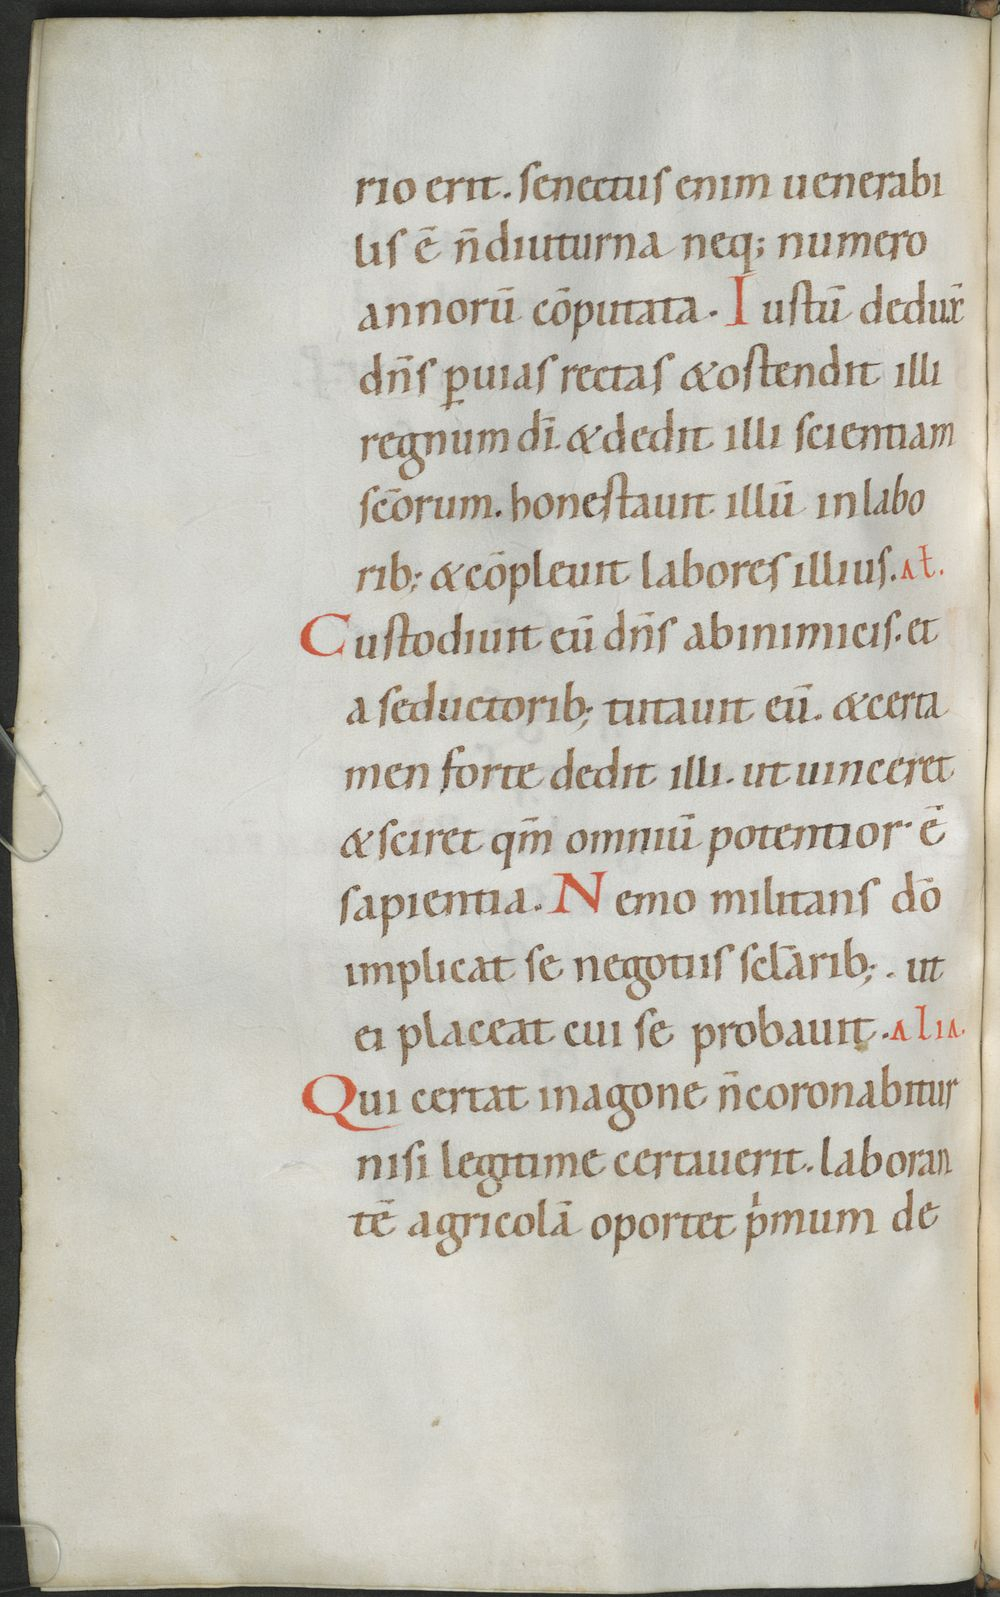 rio erit. senectus enim uenerabi
lis ē n̄ diuturna neq; numero
annorū cōputata. Iustū dedux̄
dn̄s ꝑ uias rectas & ostendit illi
regnum dī. & dedit illi scientiam
scōrum. honestauit illū in labo
rib; & cōpleuit labores illius. Ał.
Custodiuit eū dn̄s ab inimicis. et
a seductorib; tutauit eū. & certa
men forte dedit illi. ut uinceret
& sciret qm̄ omniū potentior ē
sapientia. Nemo militans dō
implicat se negotiis sclārib;. ut
ei placeat cui se probauit. Alia.
Qui certat in agone n̄ coronabitur
nisi legitime certauerit. laboran
tē agricolā oportet pͥmum de